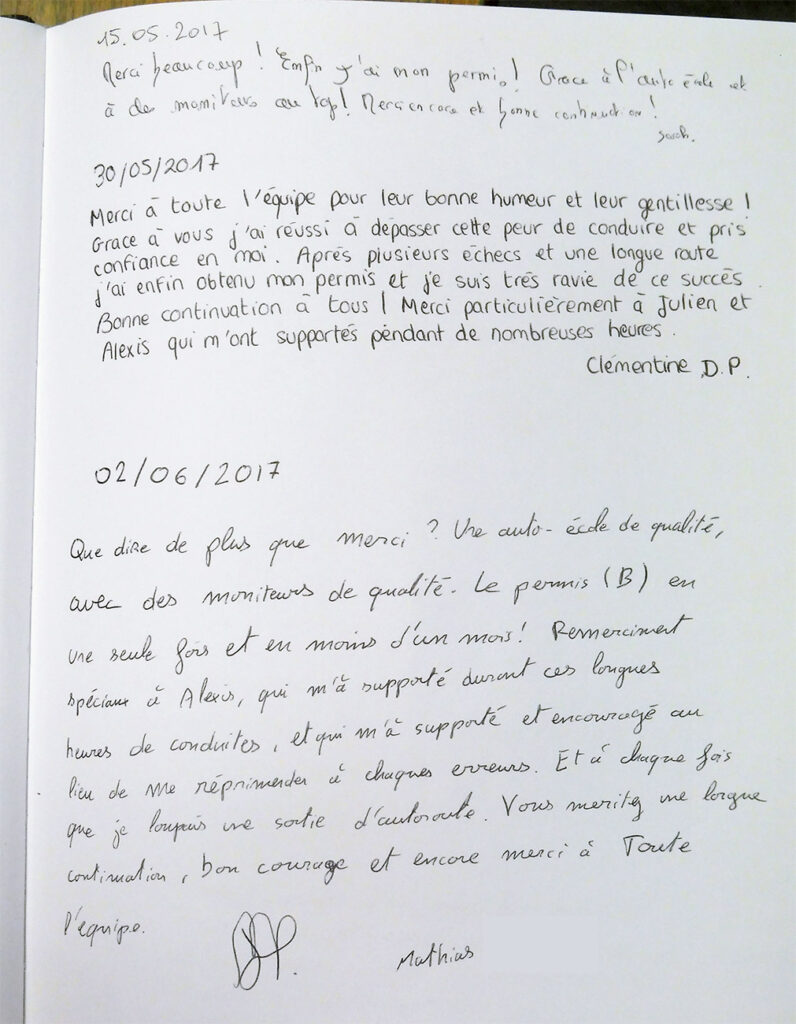 15.05.2017
Merci beaucoup ! Enfin j'ai mon permis ! Grace à l'auto école et
à des moniteurs au top ! Merci encore et bonne continuation !
Sarah.
30/05/2017
Merci à toute l'équipe pour leur bonne humeur et leur gentillesse !
Grace à vous j'ai réussi à dépasser cette peur de conduire et pris
confiance en moi. Après plusieurs échecs et une longue route
j'ai enfin obtenu mon permis et je suis très ravie de ce succès.
Bonne continuation à tous ! Merci particulièrement à Julien et
Alexis qui m'ont supportés pendant de nombreuses heures.
Clémentine D.P.
02/06/2017
Que dire de plus que merci ? Une auto-école de qualité,
avec des moniteurs de qualité. Le permis (B) en
une seule fois et en moins d'un mois ! Remerciment
spéciaux à Alexis, qui m'à supporté durant ces longues
heures de conduites, et qui m'à supporté et encouragé au
lieu de me réprimender à chaques erreurs. Et à chaque fois
que je loupais une sortie d'autoroute. Vous meritez une longue
continuation, bon courage et encore merci à Toute
l'équipe.
Mathias